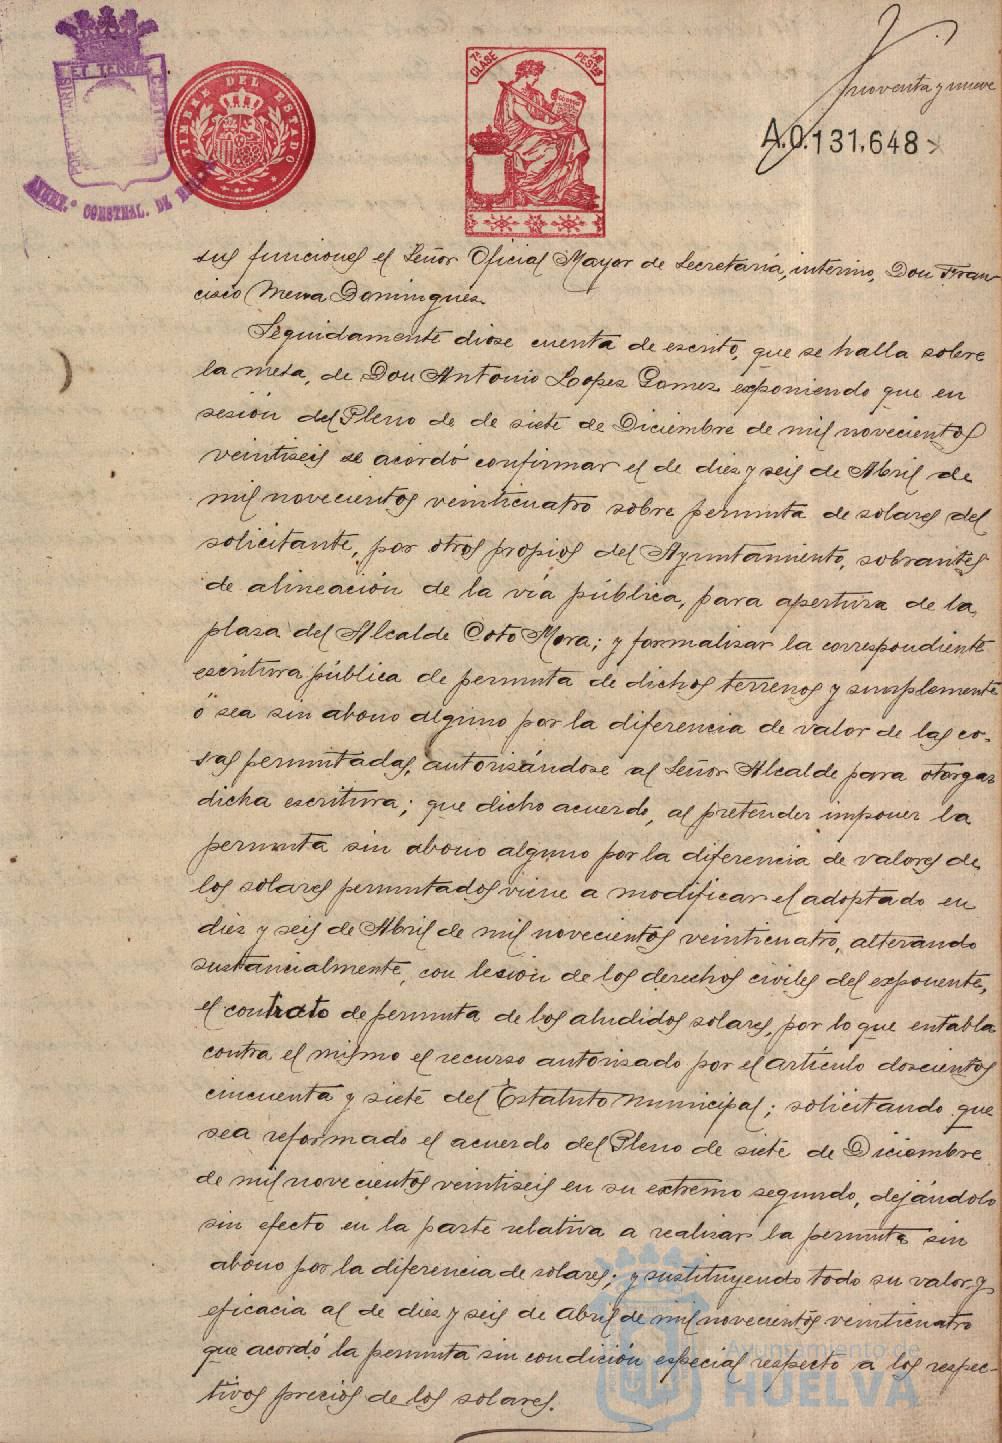 noventa y nueve
A.0.131,648
7ª CLASE
PESTS
TIMBRE DEL ESTADO
ET TERRÆ
CONSTNAL. DE
sus funciones el Señor Oficial Mayor de Secretaría, interino, Don Fran-
cisco Mena Domingues.
Seguidamente diose cuenta de escrito, que se halla sobre
la mesa, de Don Antonio Lopez Gomez exponiendo que en
sesión del Pleno de de siete de Diciembre de mil novecientos
veintiseis se acordó confirmar el de diez y seis de Abril de
mil novecientos veinticuatro sobre permuta de solares del
solicitante, por otros propios del Ayuntamiento, sobrantes
de alineación de la vía pública, para apertura de la
plasa del Alcalde Coto Mora; y formalizar la correspondiente
escritura pública de permuta de dichos terrenos y simplemente
ó sea sin abono alguno por la diferencia de valor de las co-
sas permutadas, autorisándose al Señor Alcalde para otorgar
dicha escritura; que dicho acuerdo, al pretender imponer la
permuta sin abono alguno por la diferencia de valores de
los solares permutados viene a modificar el adoptado en
diez y seis de Abril de mil novecientos veinticuatro, alterando
sustancialmente, con lesión de los derechos civiles del exponente,
el contrato de permuta de los aludidos solares, por lo que entabla
contra el mismo el recurso autorisado por el artículo doscientos
cincuenta y siete del Estatuto Municipal; solicitando que
sea reformado el acuerdo del Pleno de siete de Diciembre
de mil novecientos veintiseis en su extremo segundo, dejándolo
sin efecto en la parte relativa a realisar la permuta sin
abono por la diferencia de solares; y sustituyendo todo su valor y
eficacia al de diez y seis de Abril de mil novecientos veinticuatro
que acordó la permuta sin condición especial respecto a los respec-
tivos precios de los solares.
Ayuntamiento de
HUELVA